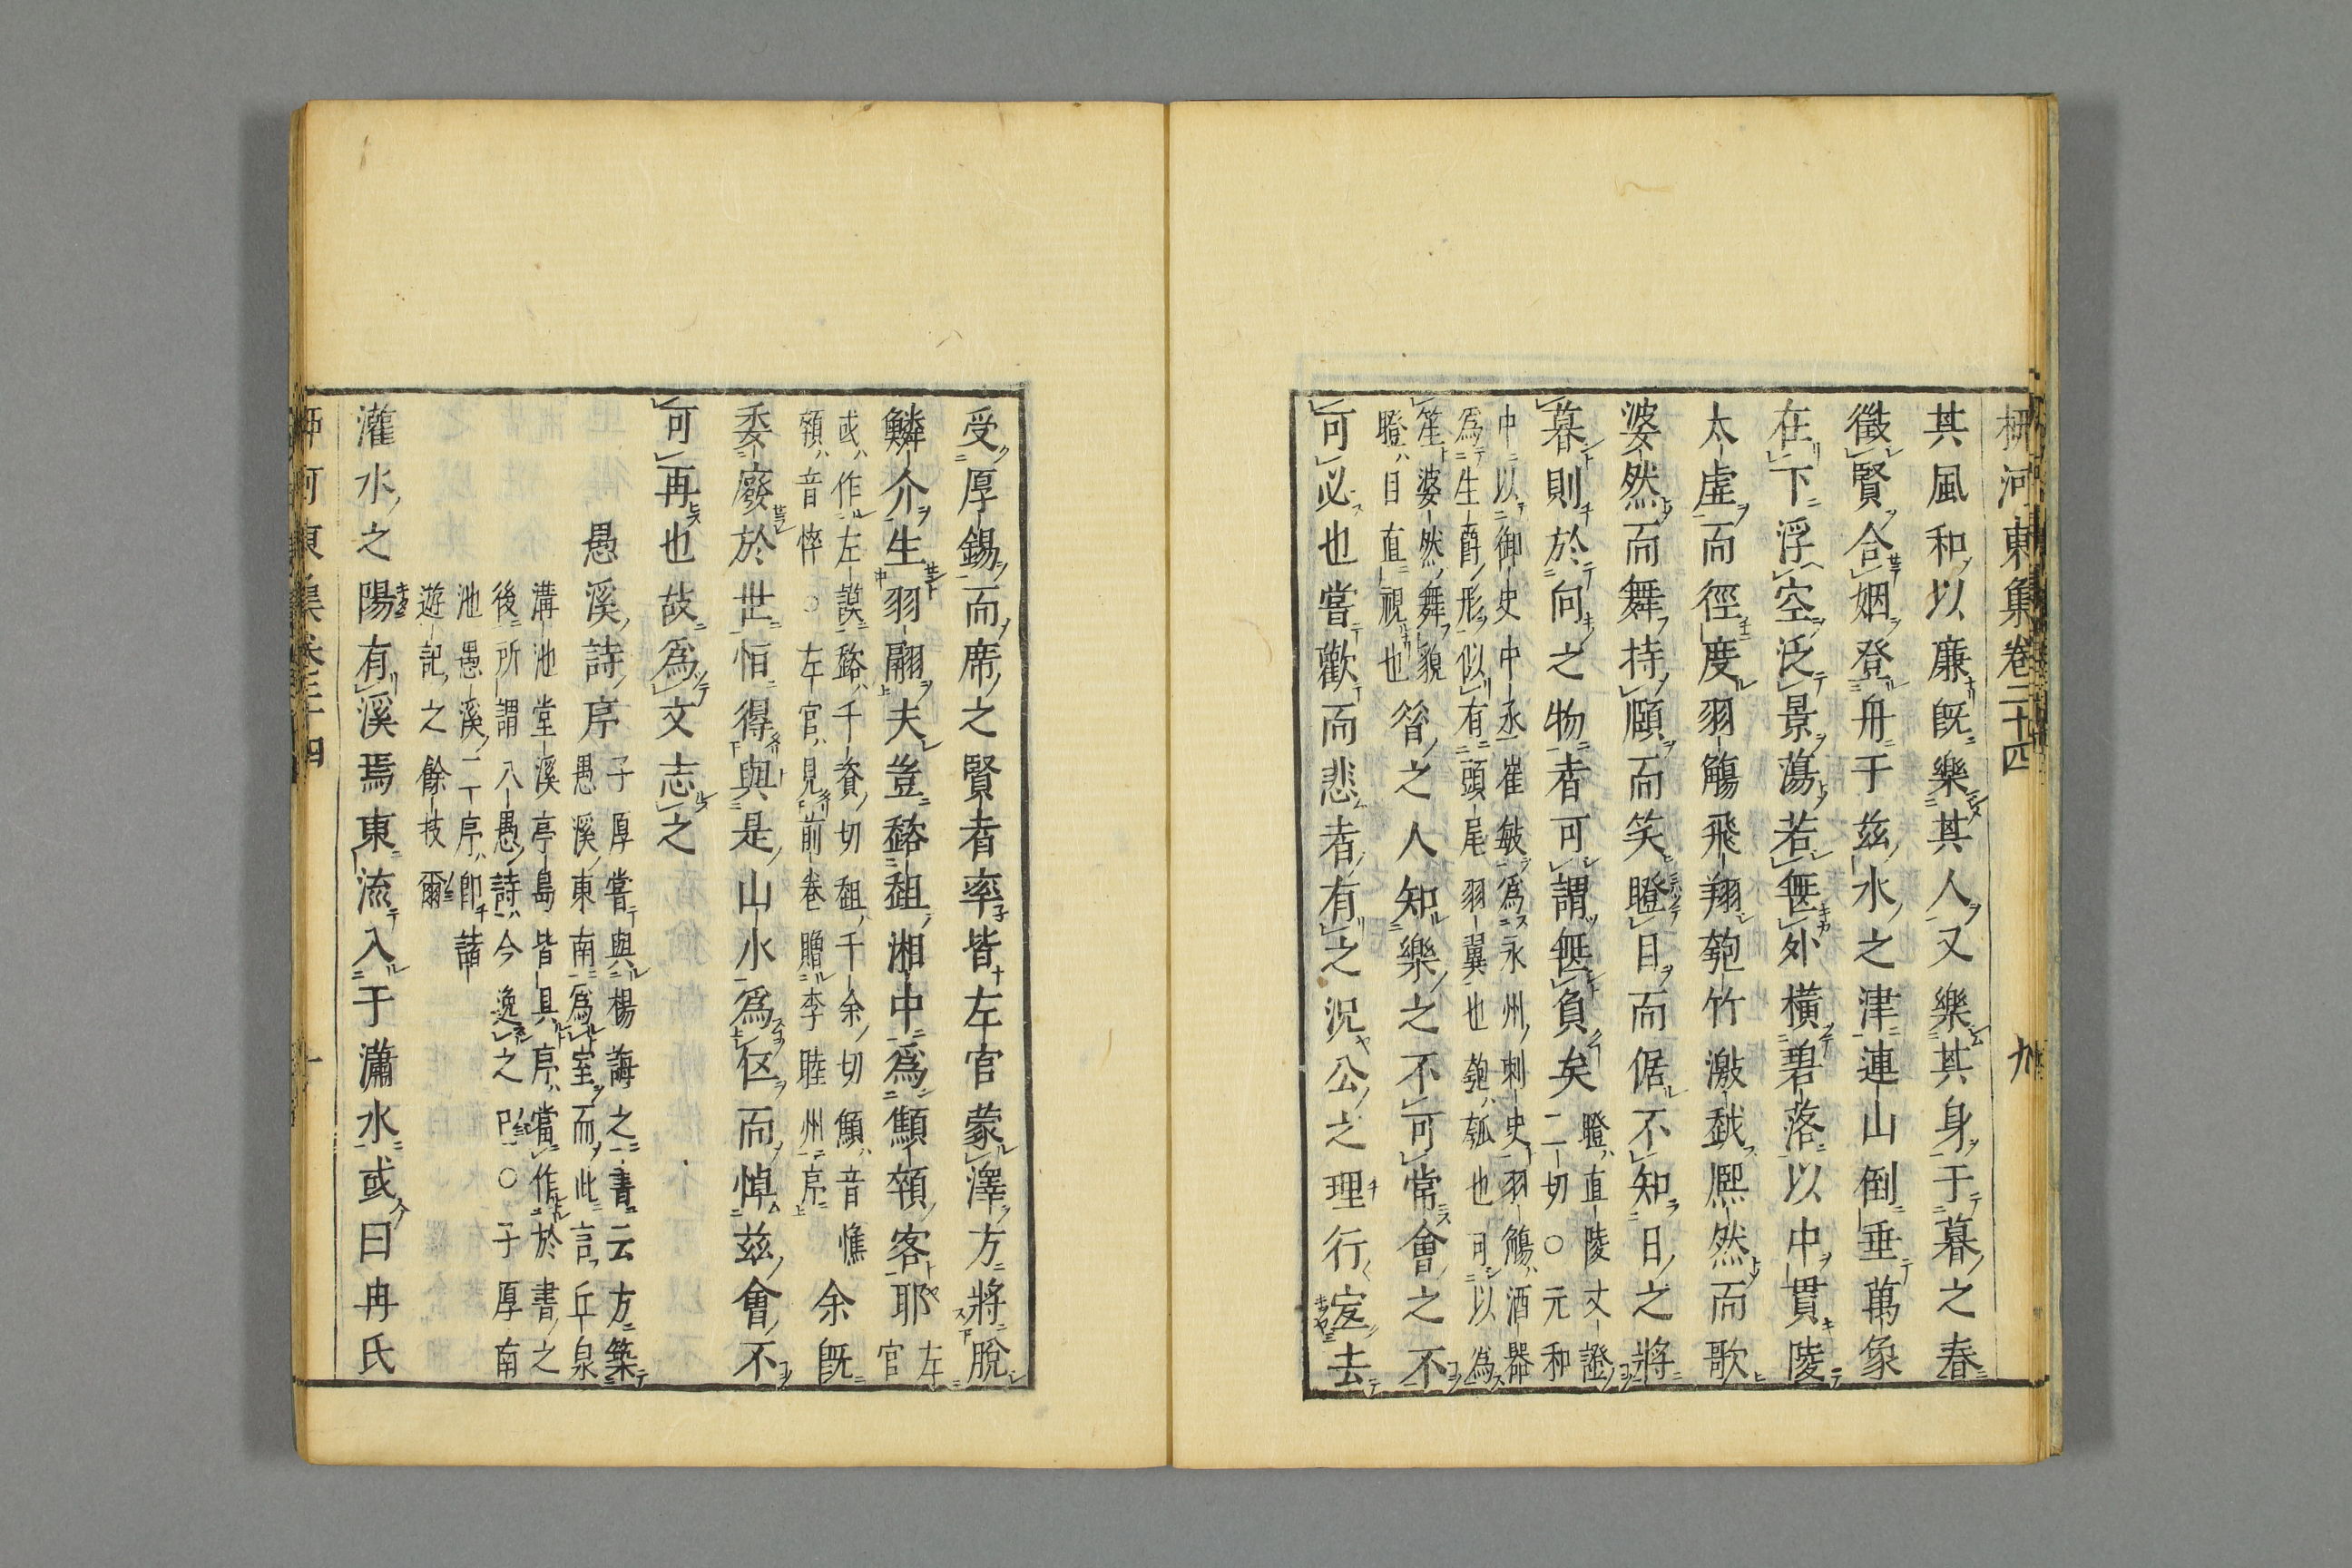 柳河東集卷二十四 九
其風和以廉既樂其人又樂其身于暮之春
徵賢合姻登舟于茲水之津連山倒垂萬象
在下浮空泛景蕩若無外橫碧落以中貫陵
太虛而徑度羽觴飛翔匏竹激越熙然而歌
婆然而舞持頤而笑瞪目而倨不知日之將
暮則於向之物者可謂無負矣
瞪直陵丈證
二切○元和
中以御史中丞崔敏為永州刺史羽觴酒器
為生爵形似有頭尾羽翼也匏瓠也可以為
笙婆然舞貌
瞪目直視也
昝之人知樂之不可常會之不
可必也嘗歡而悲者有之況公之理行宜去
受厚錫而席之賢者率皆左官蒙澤方將脫
鱗介生羽翮夫豈趑趄湘中為顦顇客耶
左
官
或作左謨趑千資切趄千余切顦音憔
顇音悴○左官見前卷贈李睦州序
余既
委廢於世恒得與是山水為伍而悼茲會不
可再也故為文志之
愚溪詩序
子厚嘗與楊誨之書云方築
愚溪東南為室而此言丘泉
溝池堂溪亭島皆具序當作於書之
後所謂八愚詩今逸之巳○子厚南
池愚溪二序即諸
遊記之餘技爾
灌水之陽有溪焉東流入于瀟水或曰冉氏